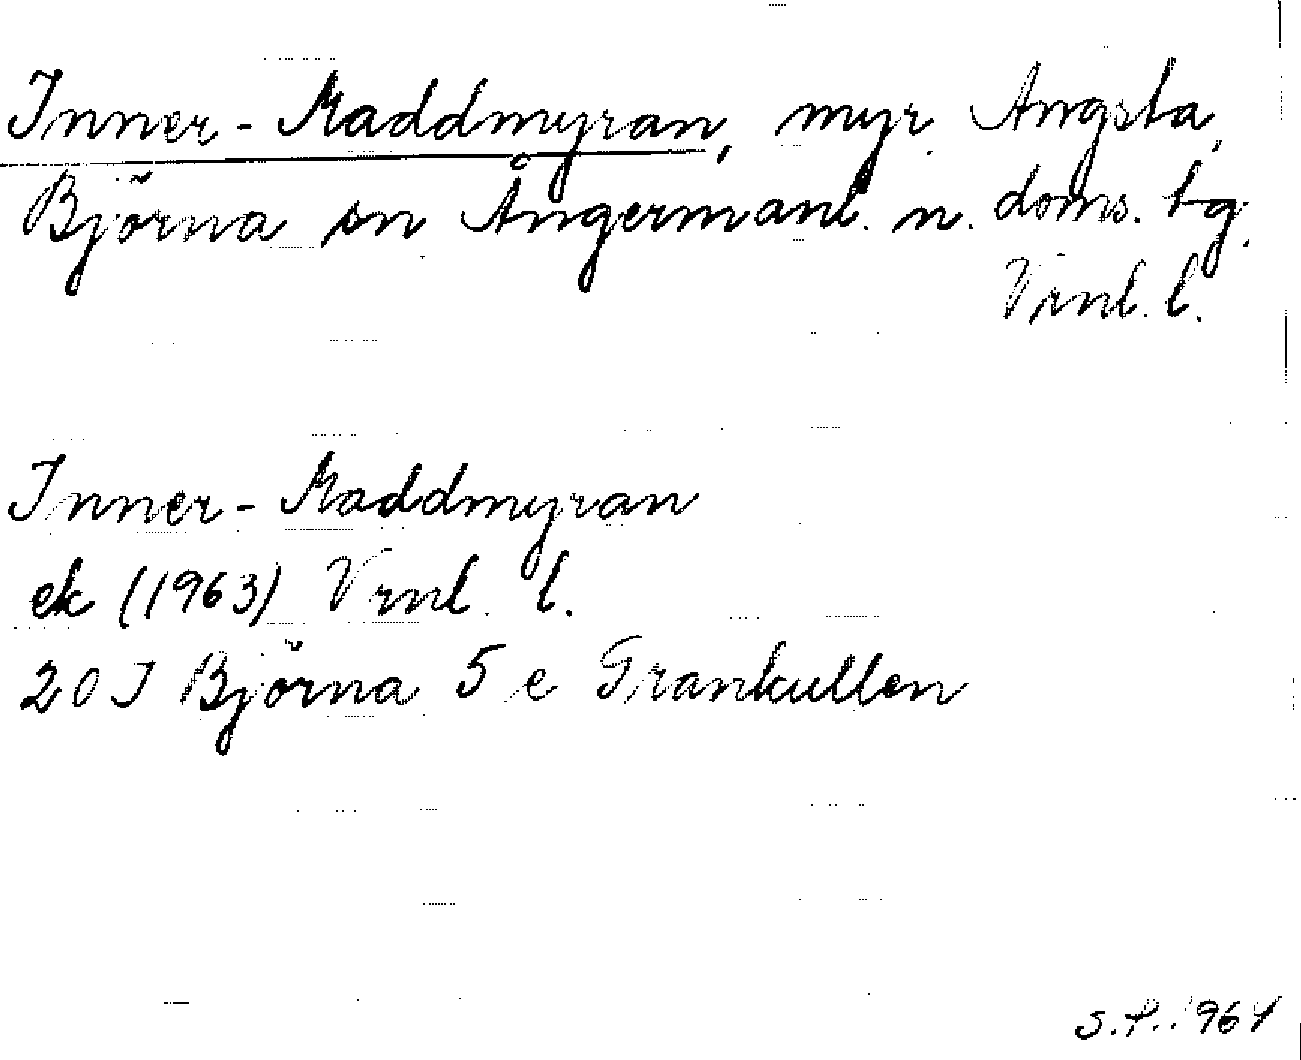 Inner-Maddmyran, myr Angsta,
Björna sn Ångermanl. n. doms. tg.
Vrnl. l.
Inner-Maddmyran
ek (1963) Vrnl. l.
20 J Björna 5 e Grankullen
S.P. 1964